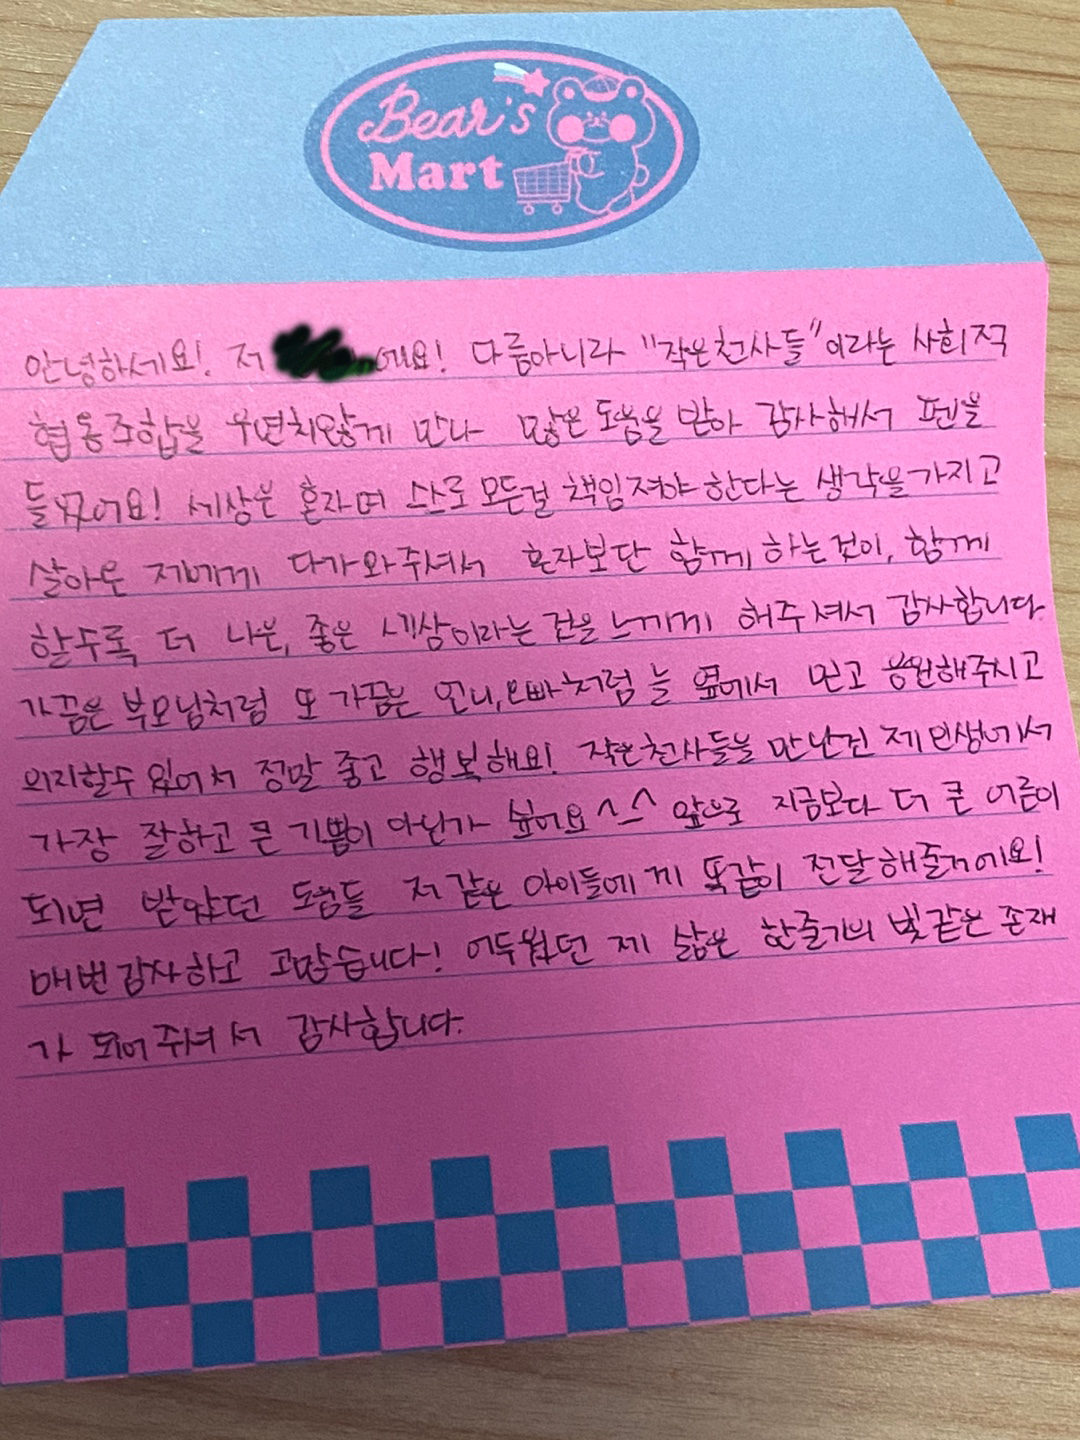 Bear's
Mart
안녕하세요! 저 에요! 다름아니라 "작은천사들"이라는 사회적
협동조합을 우연치않게 만나 많은 도움을 받아 감사해서 펜을
들었어요! 세상은 혼자며 스스로 모든걸 책임져야 한다는 생각을 가지고
살아온 제에게 다가와주셔서 혼자보단 함께 하는것이, 함께
할수록 더 나은, 좋은 세상이라는 것을 느끼게 해주셔서 감사합니다.
가끔은 부모님처럼 또 가끔은 언니,오빠처럼 늘 옆에서 믿고 응원해주시고
의지할수 있어서 정말 좋고 행복해요! 작은천사들을 만난건 제 인생에서
가장 잘하고 큰 기쁨이 아닌가 싶어요 ^_^ 앞으로 지금보다 더 큰 어른이
되면 받았던 도움들 저 같은 아이들에게 똑같이 전달해줄거에요!
매번 감사하고 고맙습니다! 어두웠던 제 삶은 한줄기의 빛같은 존재
가 되어주셔서 감사합니다.